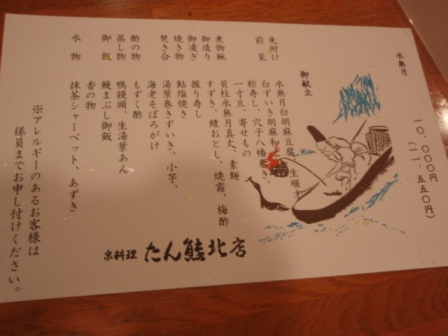 水無月
一〇、〇〇〇円
(一一、五五〇円)
御献立
先附け 水無月白胡麻豆腐、生順才
前菜 白ずいき胡麻和え
粽寿し、穴子八幡巻き、
一寸豆、寄せもの
煮物椀 貝柱水無月真丈、素麺
御造り すずき、鱧おとし、焼霜、梅酢
御凌ぎ 握り寿し
焼き物 鮎塩焼き
焚き合 湯葉巻きずいき、小芋、
海老そぼろがけ
酢の物 もずく酢
蒸し物 鴨饅頭、生湯葉あん
御飯 鰻まぶし御飯
香の物
水物 抹茶シャーベット、あずき
※アレルギーのあるお客様は
係員までお申し付けください。
京料理 たん熊北店